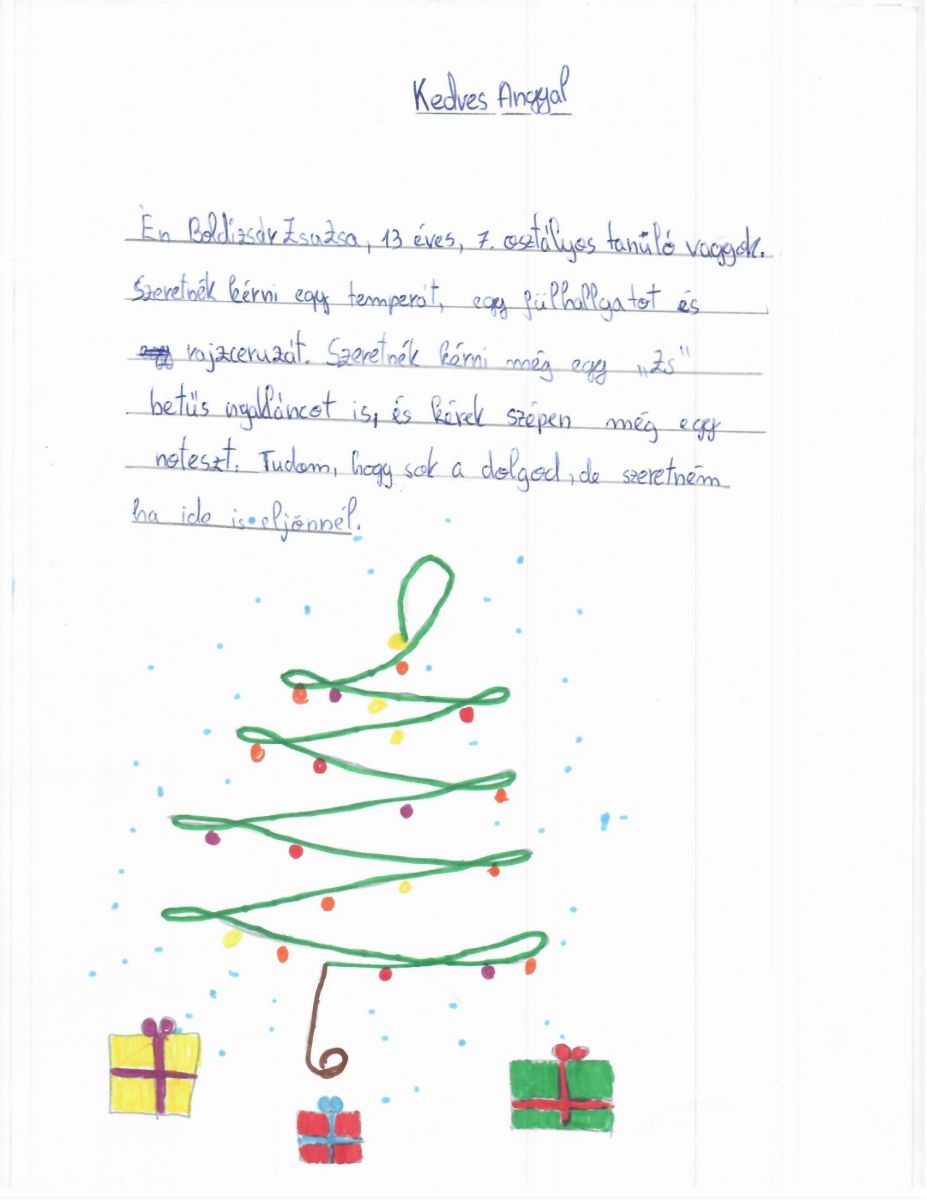 Kedves Angyal
Én Boldizsár Zsuzsa, 13 éves, 7. osztályos tanúló vaggyok.
Szeretnék kérni egy temperát, egy fülhallgatot és
rajzceruzát. Szeretnék kérni még egy „Zs"
betűs nyakláncot is, és kérek szépen még egy
noteszt. Tudom, hogy sok a dolgod, de szeretném
ha ide is eljönnél.